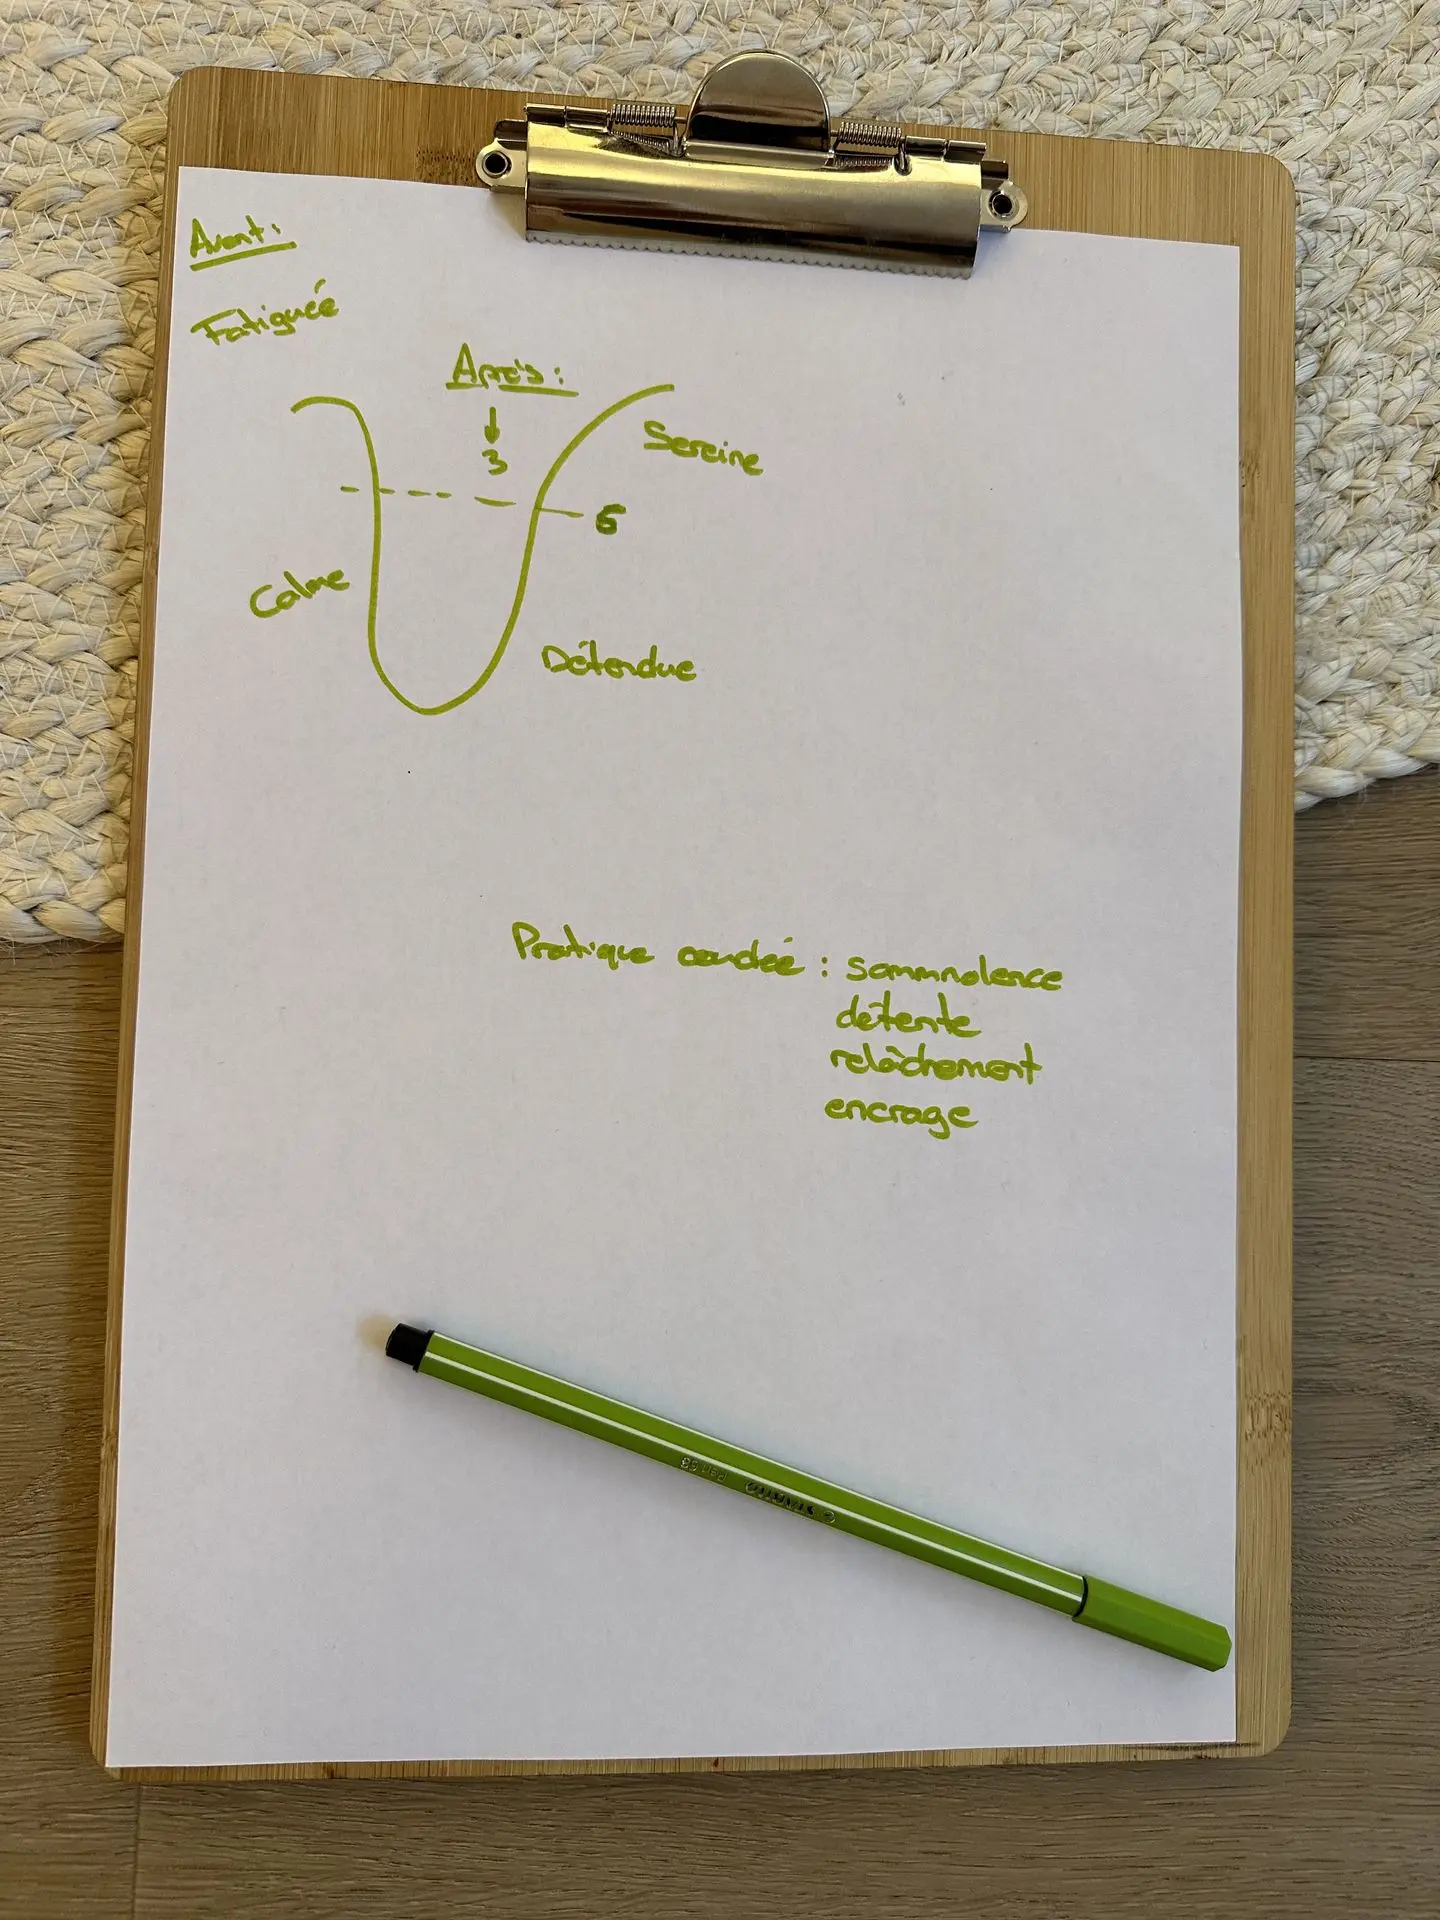 Avant :
Fatiguée
Après :
3
Sereine
6
Calme
Détendue
Pratique couchée : sommnolence
détente
relâchement
encrage
STABILO Pen 68